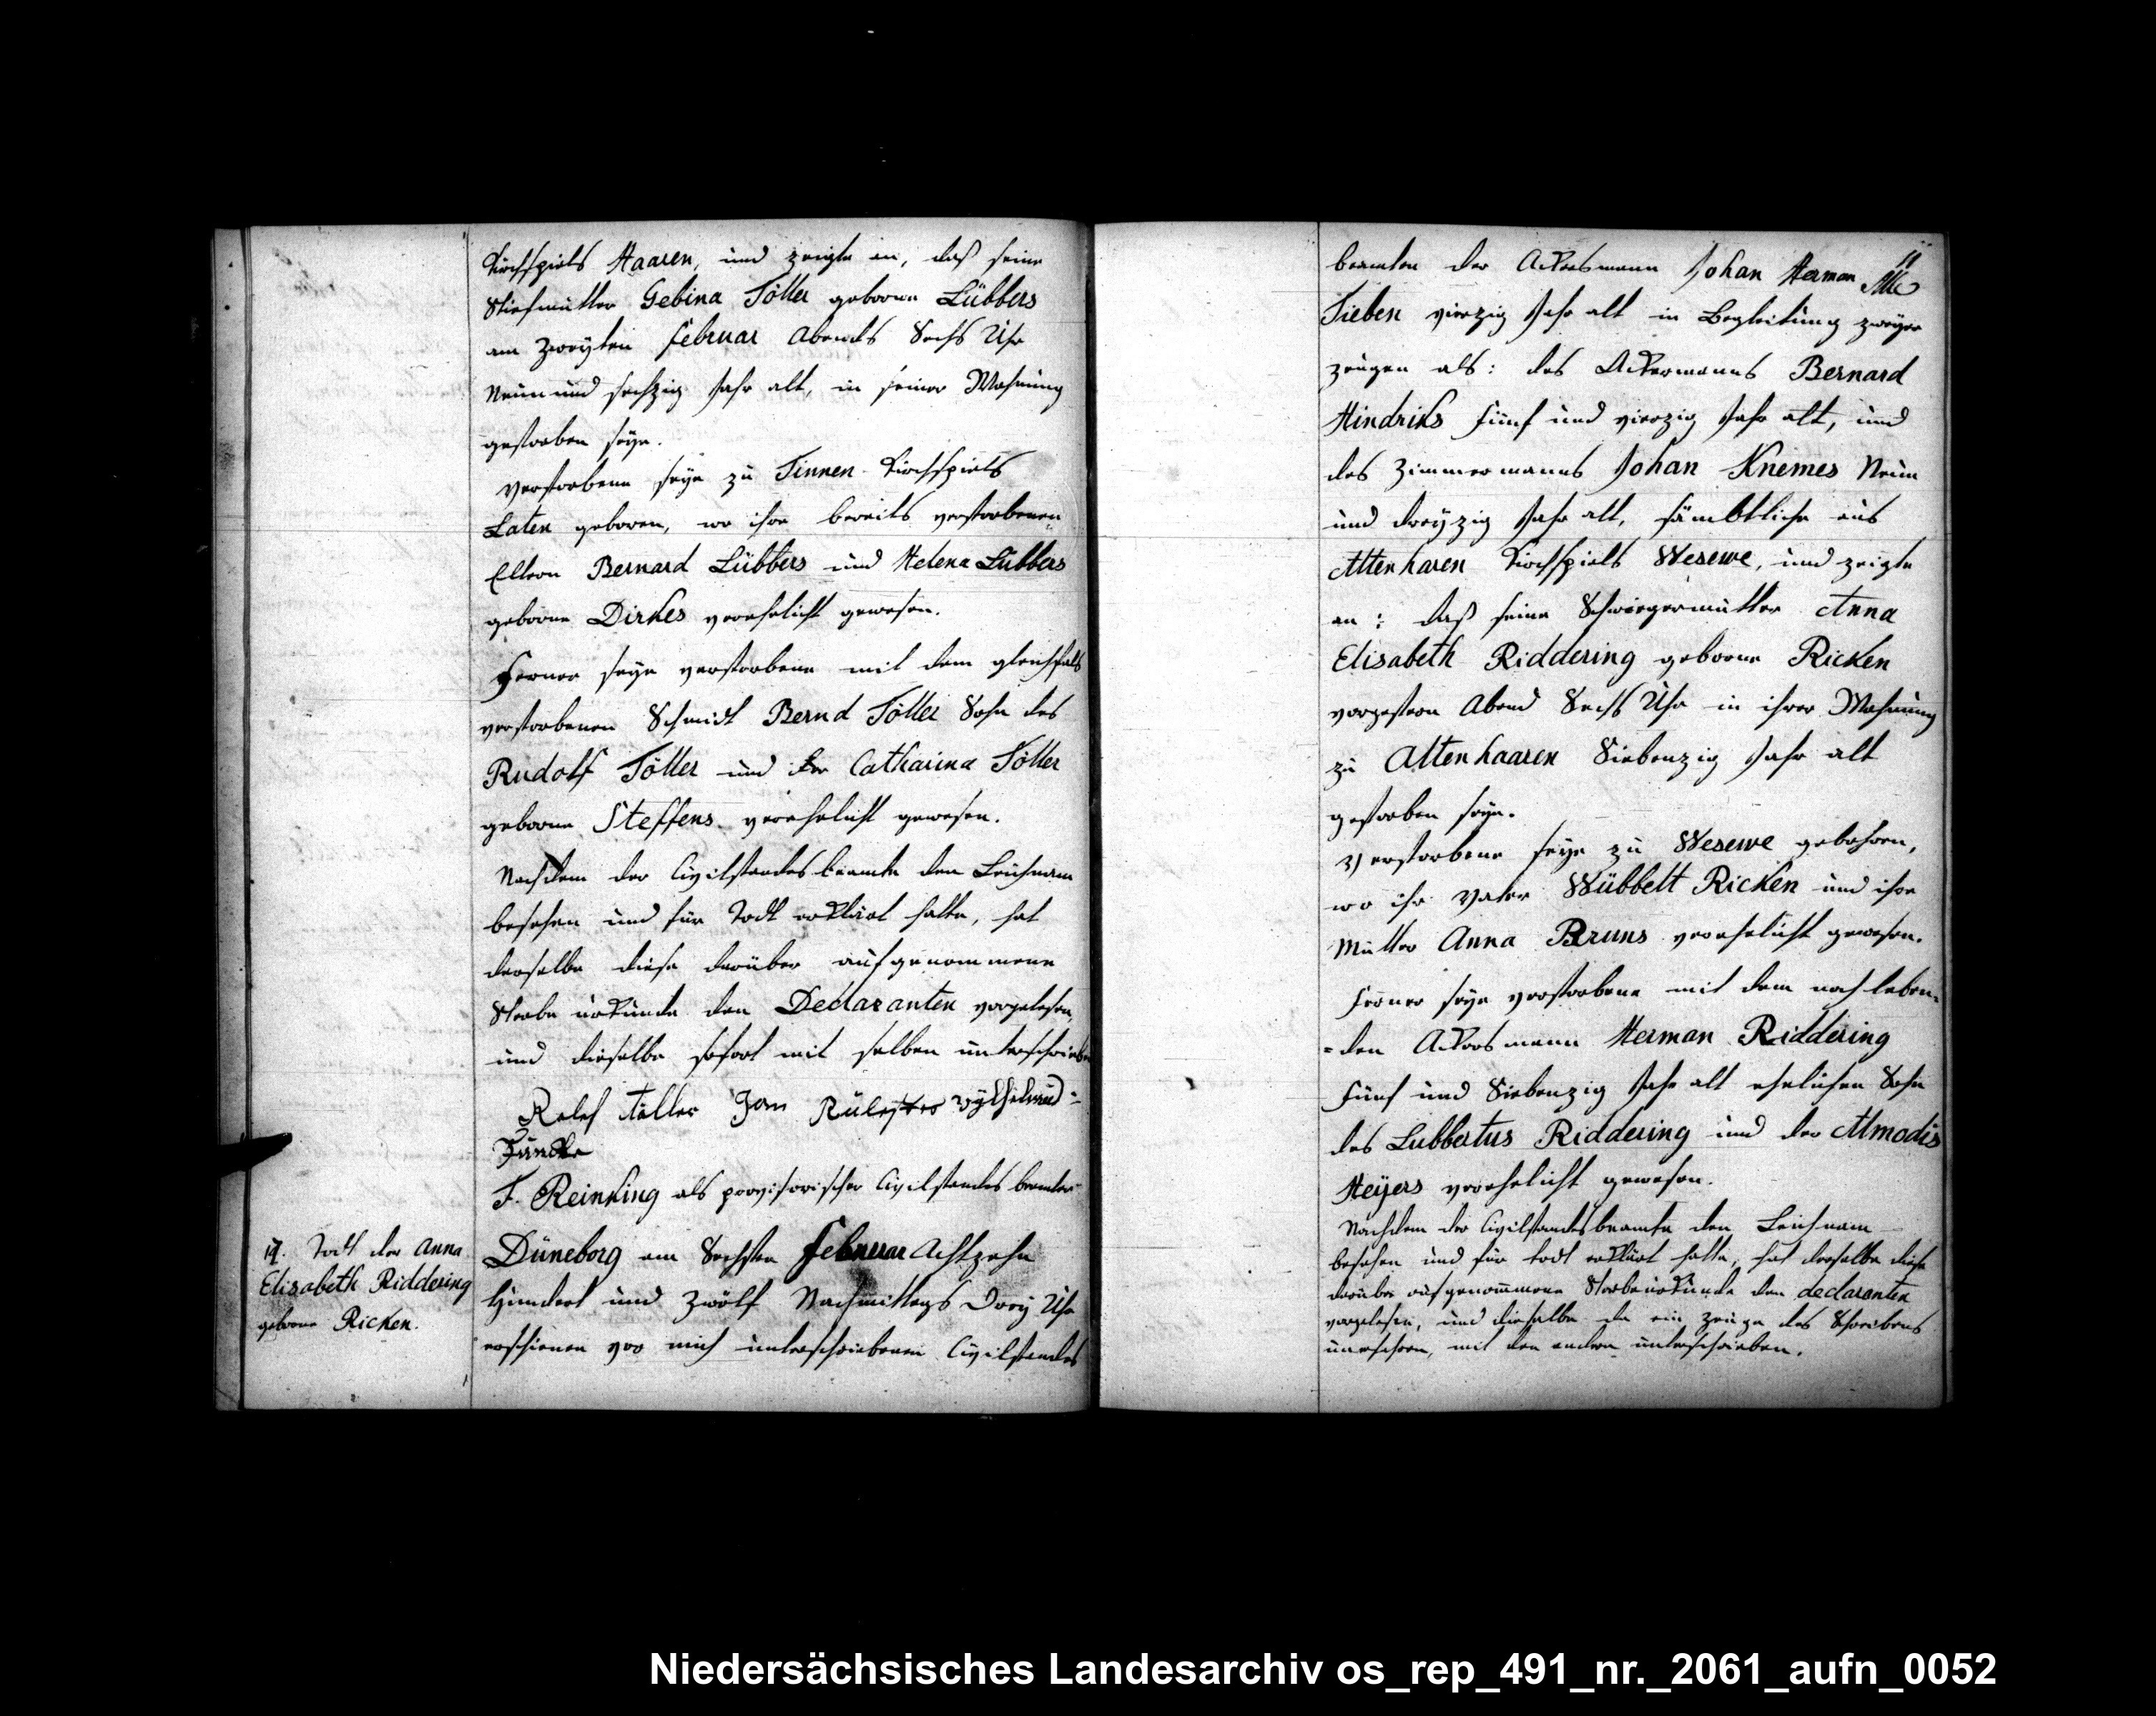 Kirchspiels Haaren, und zeigte an, daß seine
Stiefmutter Gebina Töller geborne Lübbers
am Zweyten Februar Abends Sechs Uhr
Neun und sechzig Jahr alt, in seiner Wohnung
gestorben seye.
Verstorbene seye zu Tinnen Kirchspiels
Laten geboren, wo ihre bereits verstorbenen
Eltern Bernard Lübbers und Helena Lübbers
geborne Dirkes verehelicht gewesen.
Ferner seye verstorbene mit dem gleichfals
verstorbenen Schmidt Bernd Töller Sohn des
Rudolf Töller und der Catharina Töller
geborne Steffens verehelicht gewesen.
Nachdem der Civilstandesbeamte den Leichnam
besehen und für Todt erklärt hatte, hat
derselbe diese darüber aufgenommene
Sterbe urkunde den Declaranten vorgelesen,
und dieselbe sofort mit selben unterschrieben
Rolef Töller Jan
F. Reinking als provisorischer Civilstandes beamter
17. Todt der Anna
Elisabeth Riddering
geborne Ricken.
Düneborg am Sechsten Februar Achtzehn
Hundert und Zwölf Nachmittags Drey Uhr
erschienen vor mich unterschriebenen Civilstandes
11
beamten der Ackersmann Johan Herman
Tieben vierzig Jahr alt in Begleitung zweyer
Zeugen als: des Ackermanns Bernard
Hindriks Fünf und vierzig Jahr alt, und
des Zimmermanns Johan Knemes Neun
und dreyzig Jahr alt, sämbtliche aus
Altenharen Kirchspiels Wesewe, und zeigte
an: daß seine Schwiegermutter Anna
Elisabeth Riddering geborne Ricken
vorgestern Abend Sechs Uhr in ihrer Wohnung
zu Altenhaaren Siebenzig Jahr alt
gestorben seye.
Verstorbene seye zu Wesewe gebohren,
wo ihr Vater Wübbelt Ricken und ihre
Mutter Anna Bruns verehelicht gewesen.
Ferner seye verstorbene mit dem noch leben=
=den Ackersmann Herman Riddering
Fünf und Siebenzig Jahr alt ehelichen Sohn
des Lubbertus Riddering und der Almodis
Heijers verehelicht gewesen.
Nachdem der Civilstandesbeamte den Leichnam
besehen und für todt erklärt hatte, hat derselbe diese
darüber aufgenommene Sterbeurkunde den declaranten
vorgelesen, und dieselbe da ein Zeuge des Schreibens
unerfahren, mit den andern unterschrieben.
Niedersächsisches Landesarchiv os_rep_491_nr._2061_aufn_0052